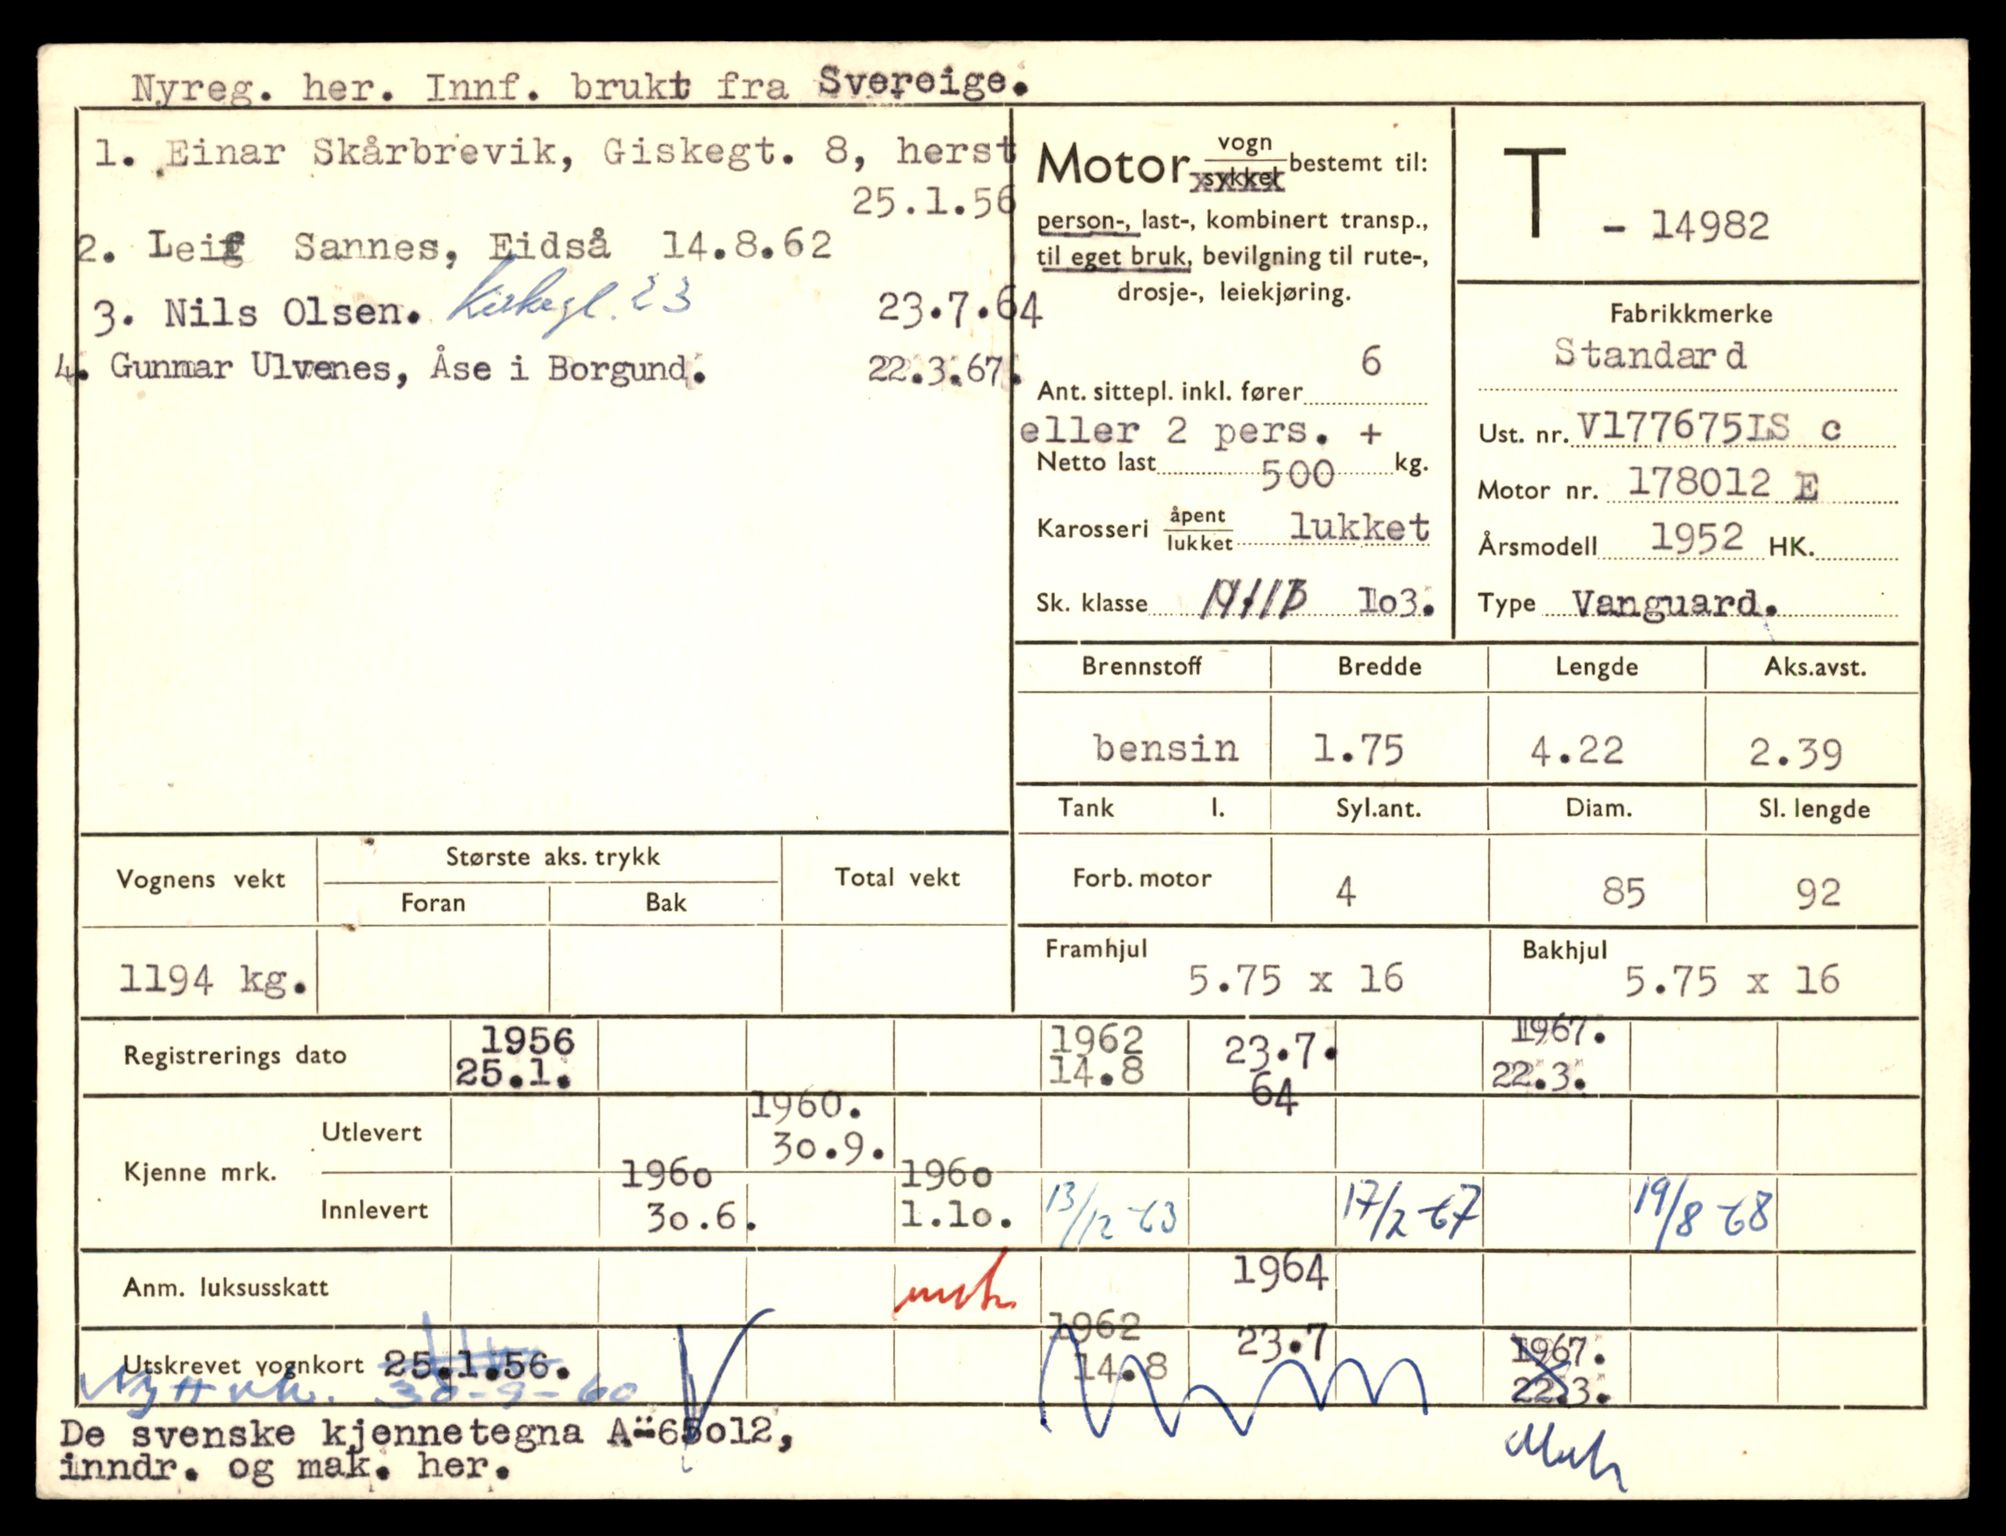 Nyreg. her. Innf. brukt fra Svereige.
1. Einar Skårbrevik, Giskegt. 8, herst
25.1.56
2. Leif Sannes, Eidså 14.8.62
3. Nils Olsen. 23 23.7.64
4. Gunnar Ulvenes, Åse i Borgund. 22.3.67.
Motor vogn sykkel bestemt til:
person-, last-, kombinert transp.,
til eget bruk, bevilgning til rute-,
drosje-, leiekjøring.
Ant. sittepl. inkl. fører 6
eller 2 pers. +
Netto last 500 kg.
Karosseri åpent lukket lukket
Sk. klasse 1o3.
T - 14982
Fabrikkmerke
Standard
Ust. nr. V177675LS c
Motor nr. 178012 E
Årsmodell 1952 HK.
Type Vanguard.
Brennstoff Bredde Lengde Aks.avst.
bensin 1.75 4.22 2.39
Tank l. Syl.ant. Diam. Sl. lengde
Forb. motor 4 85 92
Framhjul 5.75 x 16 Bakhjul 5.75 x 16
Vognens vekt Største aks. trykk Total vekt
Foran Bak
1194 kg.
Registrerings dato 1956 25.1. 1962 14.8 23.7. 64 1967. 22.3.
Kjenne mrk.
Utlevert 1960. 3o.9.
Innlevert 196o 3o.6. 196o 1.1o. 13/12-63 17/2-67 19/8-68
Anm. luksusskatt 1964
Utskrevet vognkort 25.1.56. 1962 14.8 23.7 1967. 22.3.
Nytt vk. 30-9-60
De svenske kjennetegna A-65o12,
inndr. og mak. her.